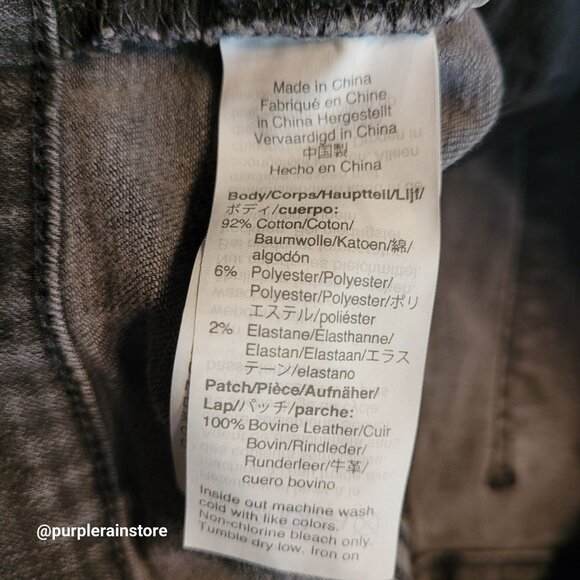 Made in China
Fabriqué en Chine
in China Hergestellt
Vervaardigd in China
中国製
Hecho en China
Body/Corps/Hauptteil/Lijf/
ボディ/cuerpo:
92% Cotton/Coton/
Baumwolle/Katoen/綿/
algodón
6% Polyester/Polyester/
Polyester/Polyester/ポリ
エステル/poliéster
2% Elastane/Élasthanne/
Elastan/Elastaan/エラス
テーン/elastano
Patch/Pièce/Aufnäher/
Lap/パッチ/parche:
100% Bovine Leather/Cuir
Bovin/Rindleder/
Runderleer/牛革/
cuero bovino
Inside out machine wash
cold with like colors.
Non-chlorine bleach only.
Tumble dry low. Iron on
@purplerainstore